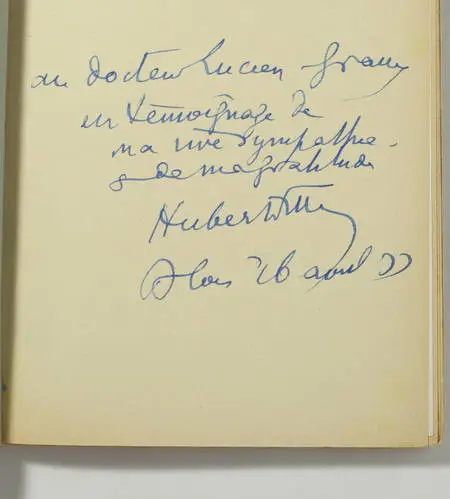 au docteur Lucien
en témoignage de
ma vive sympathie
& de ma gratitude
Hubert
26 avril 77